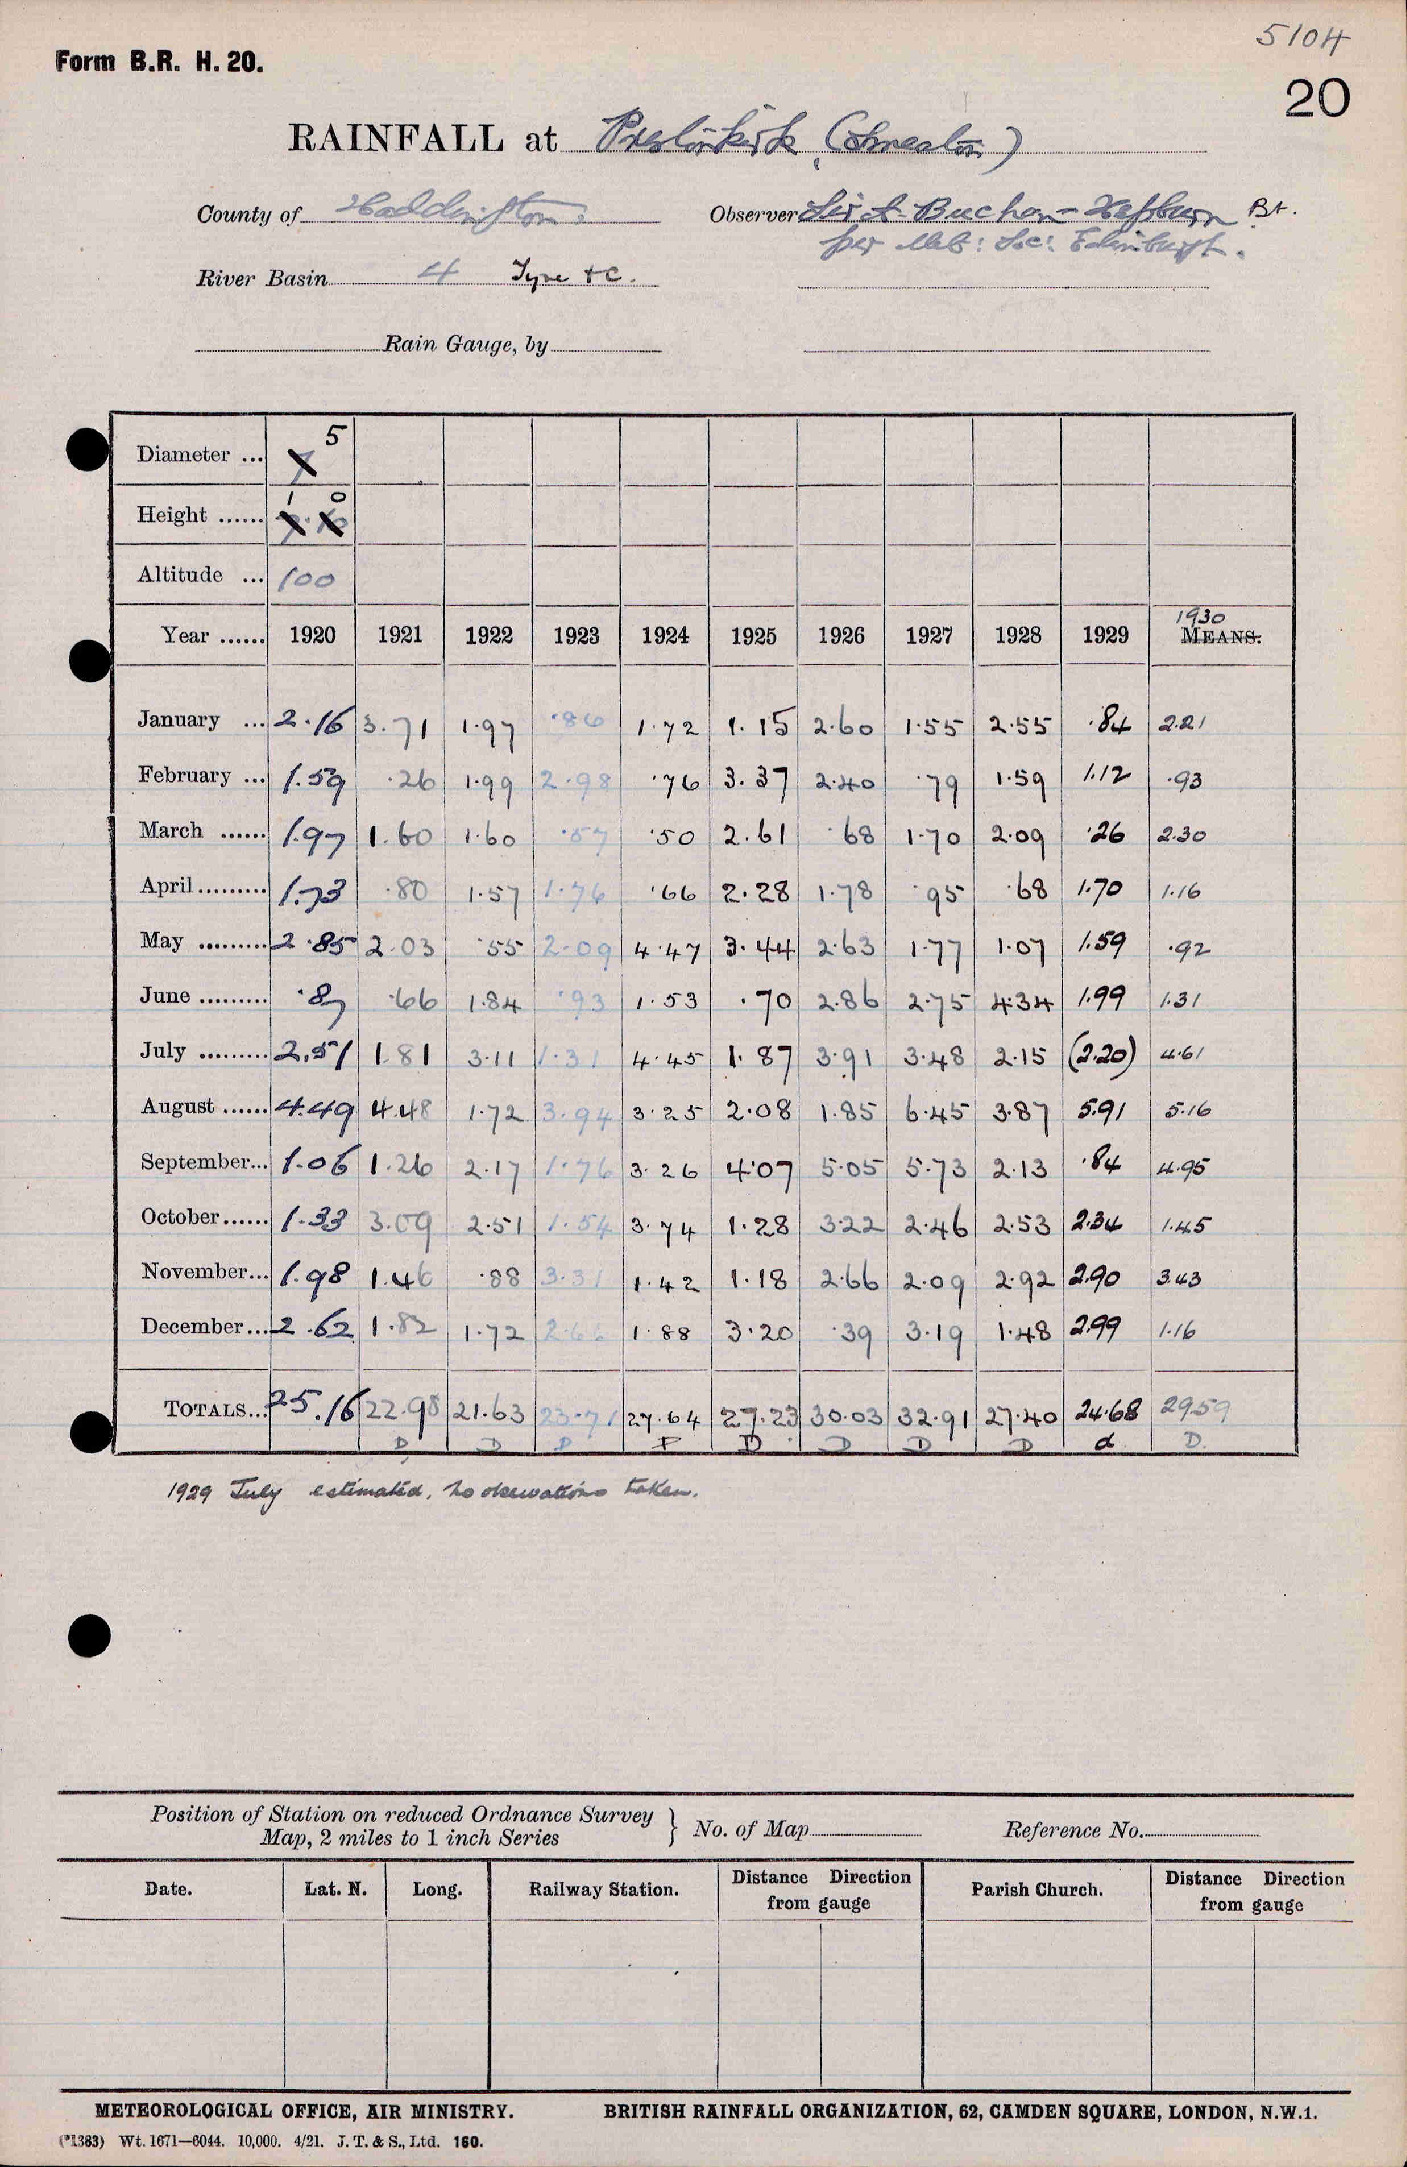 5104
Form B.R. H. 20.
20
RAINFALL at Prestonkirk (Smeaton)
County of Haddington Observer Sir A. Buchan-Hepburn Bt.
per Met: Soc: Edinburgh.
River Basin 4 Tyne &c.
Rain Gauge, by
Diameter ... 7 5
Height ...... 1 0
Altitude ... 100
1930
Year ...... 1920 1921 1922 1923 1924 1925 1926 1927 1928 1929 MEANS.
January ... 2.16 3.71 1.97 .86 1.72 1.15 2.60 1.55 2.55 .84 2.21
February ... 1.59 .26 1.99 2.98 .76 3.37 2.40 .79 1.59 1.12 .93
March ...... 1.97 1.60 1.60 .57 .50 2.61 .68 1.70 2.09 .26 2.30
April ......... 1.73 .80 1.57 1.76 .66 2.28 1.78 .95 .68 1.70 1.16
May ......... 2.85 2.03 .55 2.09 4.47 3.44 2.63 1.77 1.07 1.59 .92
June ......... .87 .66 1.84 .93 1.53 .70 2.86 2.75 4.34 1.99 1.31
July ......... 2.51 1.81 3.11 1.31 4.45 1.87 3.91 3.48 2.15 (2.20) 4.61
August ...... 4.49 4.48 1.72 3.94 3.25 2.08 1.85 6.45 3.87 5.91 5.16
September... 1.06 1.26 2.17 1.76 3.26 4.07 5.05 5.73 2.13 .84 4.95
October...... 1.33 3.09 2.51 1.54 3.74 1.28 3.22 2.46 2.53 2.34 1.45
November... 1.98 1.46 .88 3.31 1.42 1.18 2.66 2.09 2.92 2.90 3.43
December... 2.62 1.82 1.72 2.66 1.88 3.20 .39 3.19 1.48 2.99 1.16
TOTALS... 25.16 22.98 21.63 23.71 27.64 27.23 30.03 32.91 27.40 24.68 29.59
D D D D D D D D d D.
1929 July estimated, no observations taken.
Position of Station on reduced Ordnance Survey
Map, 2 miles to 1 inch Series } No. of Map Reference No.
Date. Lat. N. Long. Railway Station. Distance Direction from gauge Parish Church. Distance Direction from gauge
METEOROLOGICAL OFFICE, AIR MINISTRY. BRITISH RAINFALL ORGANIZATION, 62, CAMDEN SQUARE, LONDON, N.W.1.
(*1383) Wt. 1671—6044. 10,000. 4/21. J. T. & S., Ltd. 160.